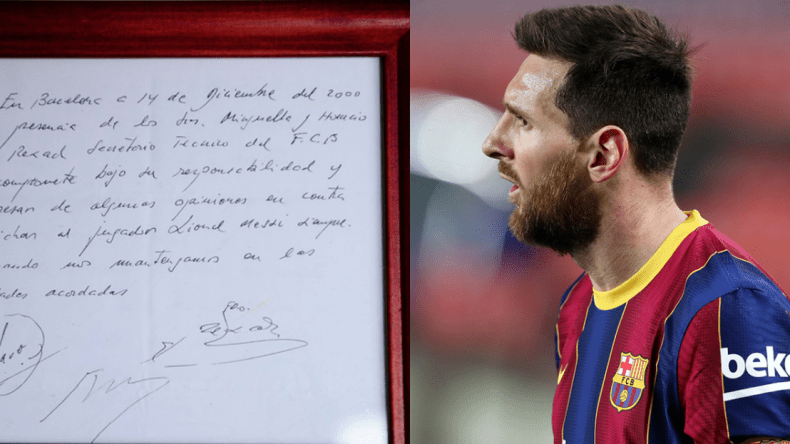 En Barcelona a 14 de Diciembre del 2000
presencia de los Srs. Minguella y Horacio
Rexach Secretario Técnico del F.C.B
compromete bajo su responsabilidad y
pesar de algunas opiniones en contra
fichar al jugador Lionel Messi siempre
cuando nos mantengamos en las
acordadas
FCB
beko